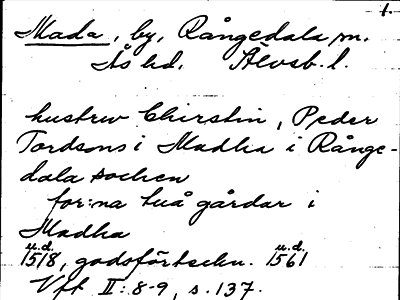 1.
Mada, by, Rångedala sn.
Ås hd. Älvsb. l.
hustrv Chirstin, Peder
Tordsons i Madha i Rånge-
dala sochen
for:na tuå gårdar i
Madha
u.d. u.d.
1518, godsförteckn. 1561
Vft II: 8-9, s. 137.